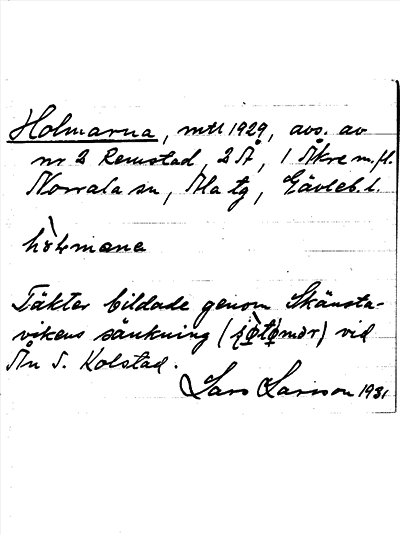 Holmarna, mtl 1929, avs. av
nr 2 Remstad, 2 Å, 1 Åkre m.fl.
Norrala sn, Ala tg, Gävleb. l.
hòlmana
Täkter bildade genom Skänsta-
vikens sänkning (jø̀tømər) vid
Ån S. Kolstad.
Lars Larsson 1931